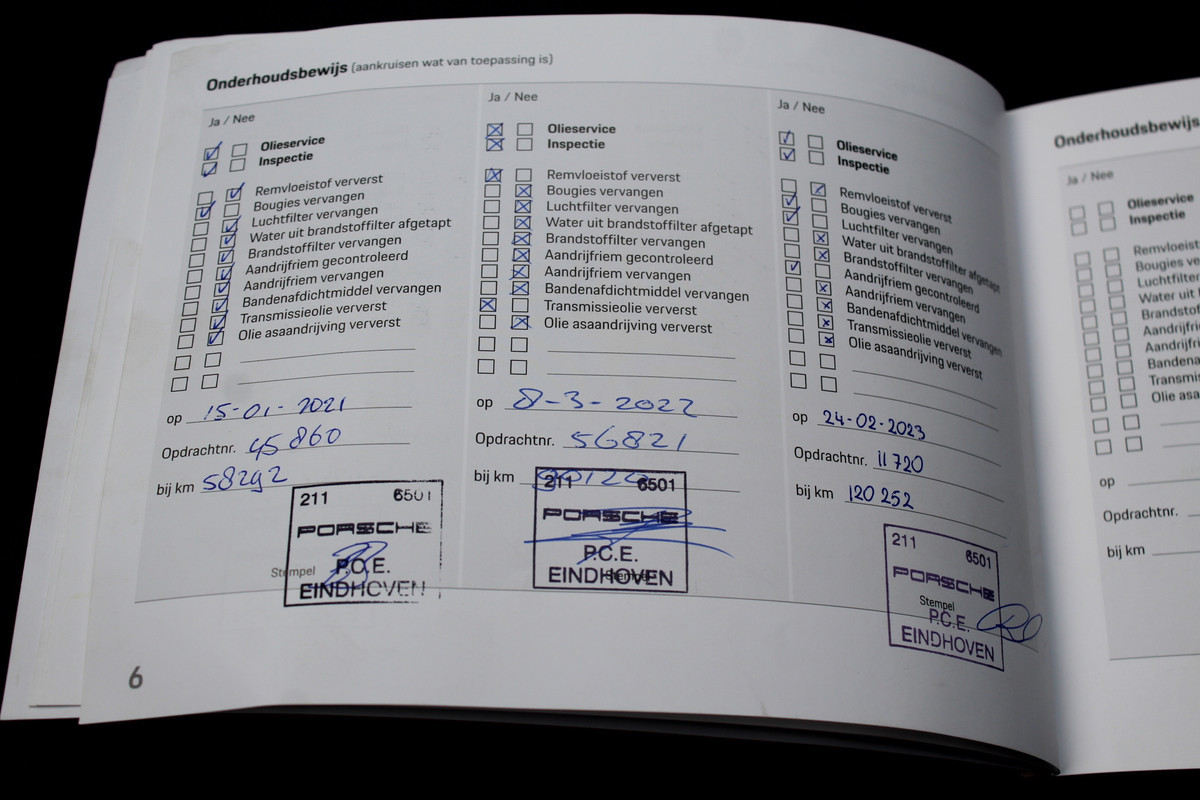 Onderhoudsbewijs (aankruisen wat van toepassing is)
Ja / Nee
Olieservice
Inspectie
Remvloeistof ververst
Bougies vervangen
Luchtfilter vervangen
Water uit brandstoffilter afgetapt
Brandstoffilter vervangen
Aandrijfriem gecontroleerd
Aandrijfriem vervangen
Bandenafdichtmiddel vervangen
Transmissieolie ververst
Olie asaandrijving ververst
op 15-01-2021
Opdrachtnr. 45860
bij km 58292
211 6501
PORSCHE
Stempel P.C.E.
EINDHOVEN
Ja / Nee
Olieservice
Inspectie
Remvloeistof ververst
Bougies vervangen
Luchtfilter vervangen
Water uit brandstoffilter afgetapt
Brandstoffilter vervangen
Aandrijfriem gecontroleerd
Aandrijfriem vervangen
Bandenafdichtmiddel vervangen
Transmissieolie ververst
Olie asaandrijving ververst
op 8-3-2022
Opdrachtnr. 56821
bij km
211 6501
PORSCHE
P.C.E.
Stempel
EINDHOVEN
Ja / Nee
Olieservice
Inspectie
Remvloeistof ververst
Bougies vervangen
Luchtfilter vervangen
Water uit brandstoffilter afgetapt
Brandstoffilter vervangen
Aandrijfriem gecontroleerd
Aandrijfriem vervangen
Bandenafdichtmiddel vervangen
Transmissieolie ververst
Olie asaandrijving ververst
op 24-02-2023
Opdrachtnr. 11720
bij km 120 252
211 6501
PORSCHE
Stempel
P.C.E.
EINDHOVEN
6
Onderhoudsbewijs
Ja / Nee
Olieservice
Inspectie
Remvloeist
Bougies ve
Luchtfilter
Water uit b
Brandstof
Aandrijfri
Aandrijfri
Bandena
Transmis
Olie asa
op
Opdrachtnr.
bij km